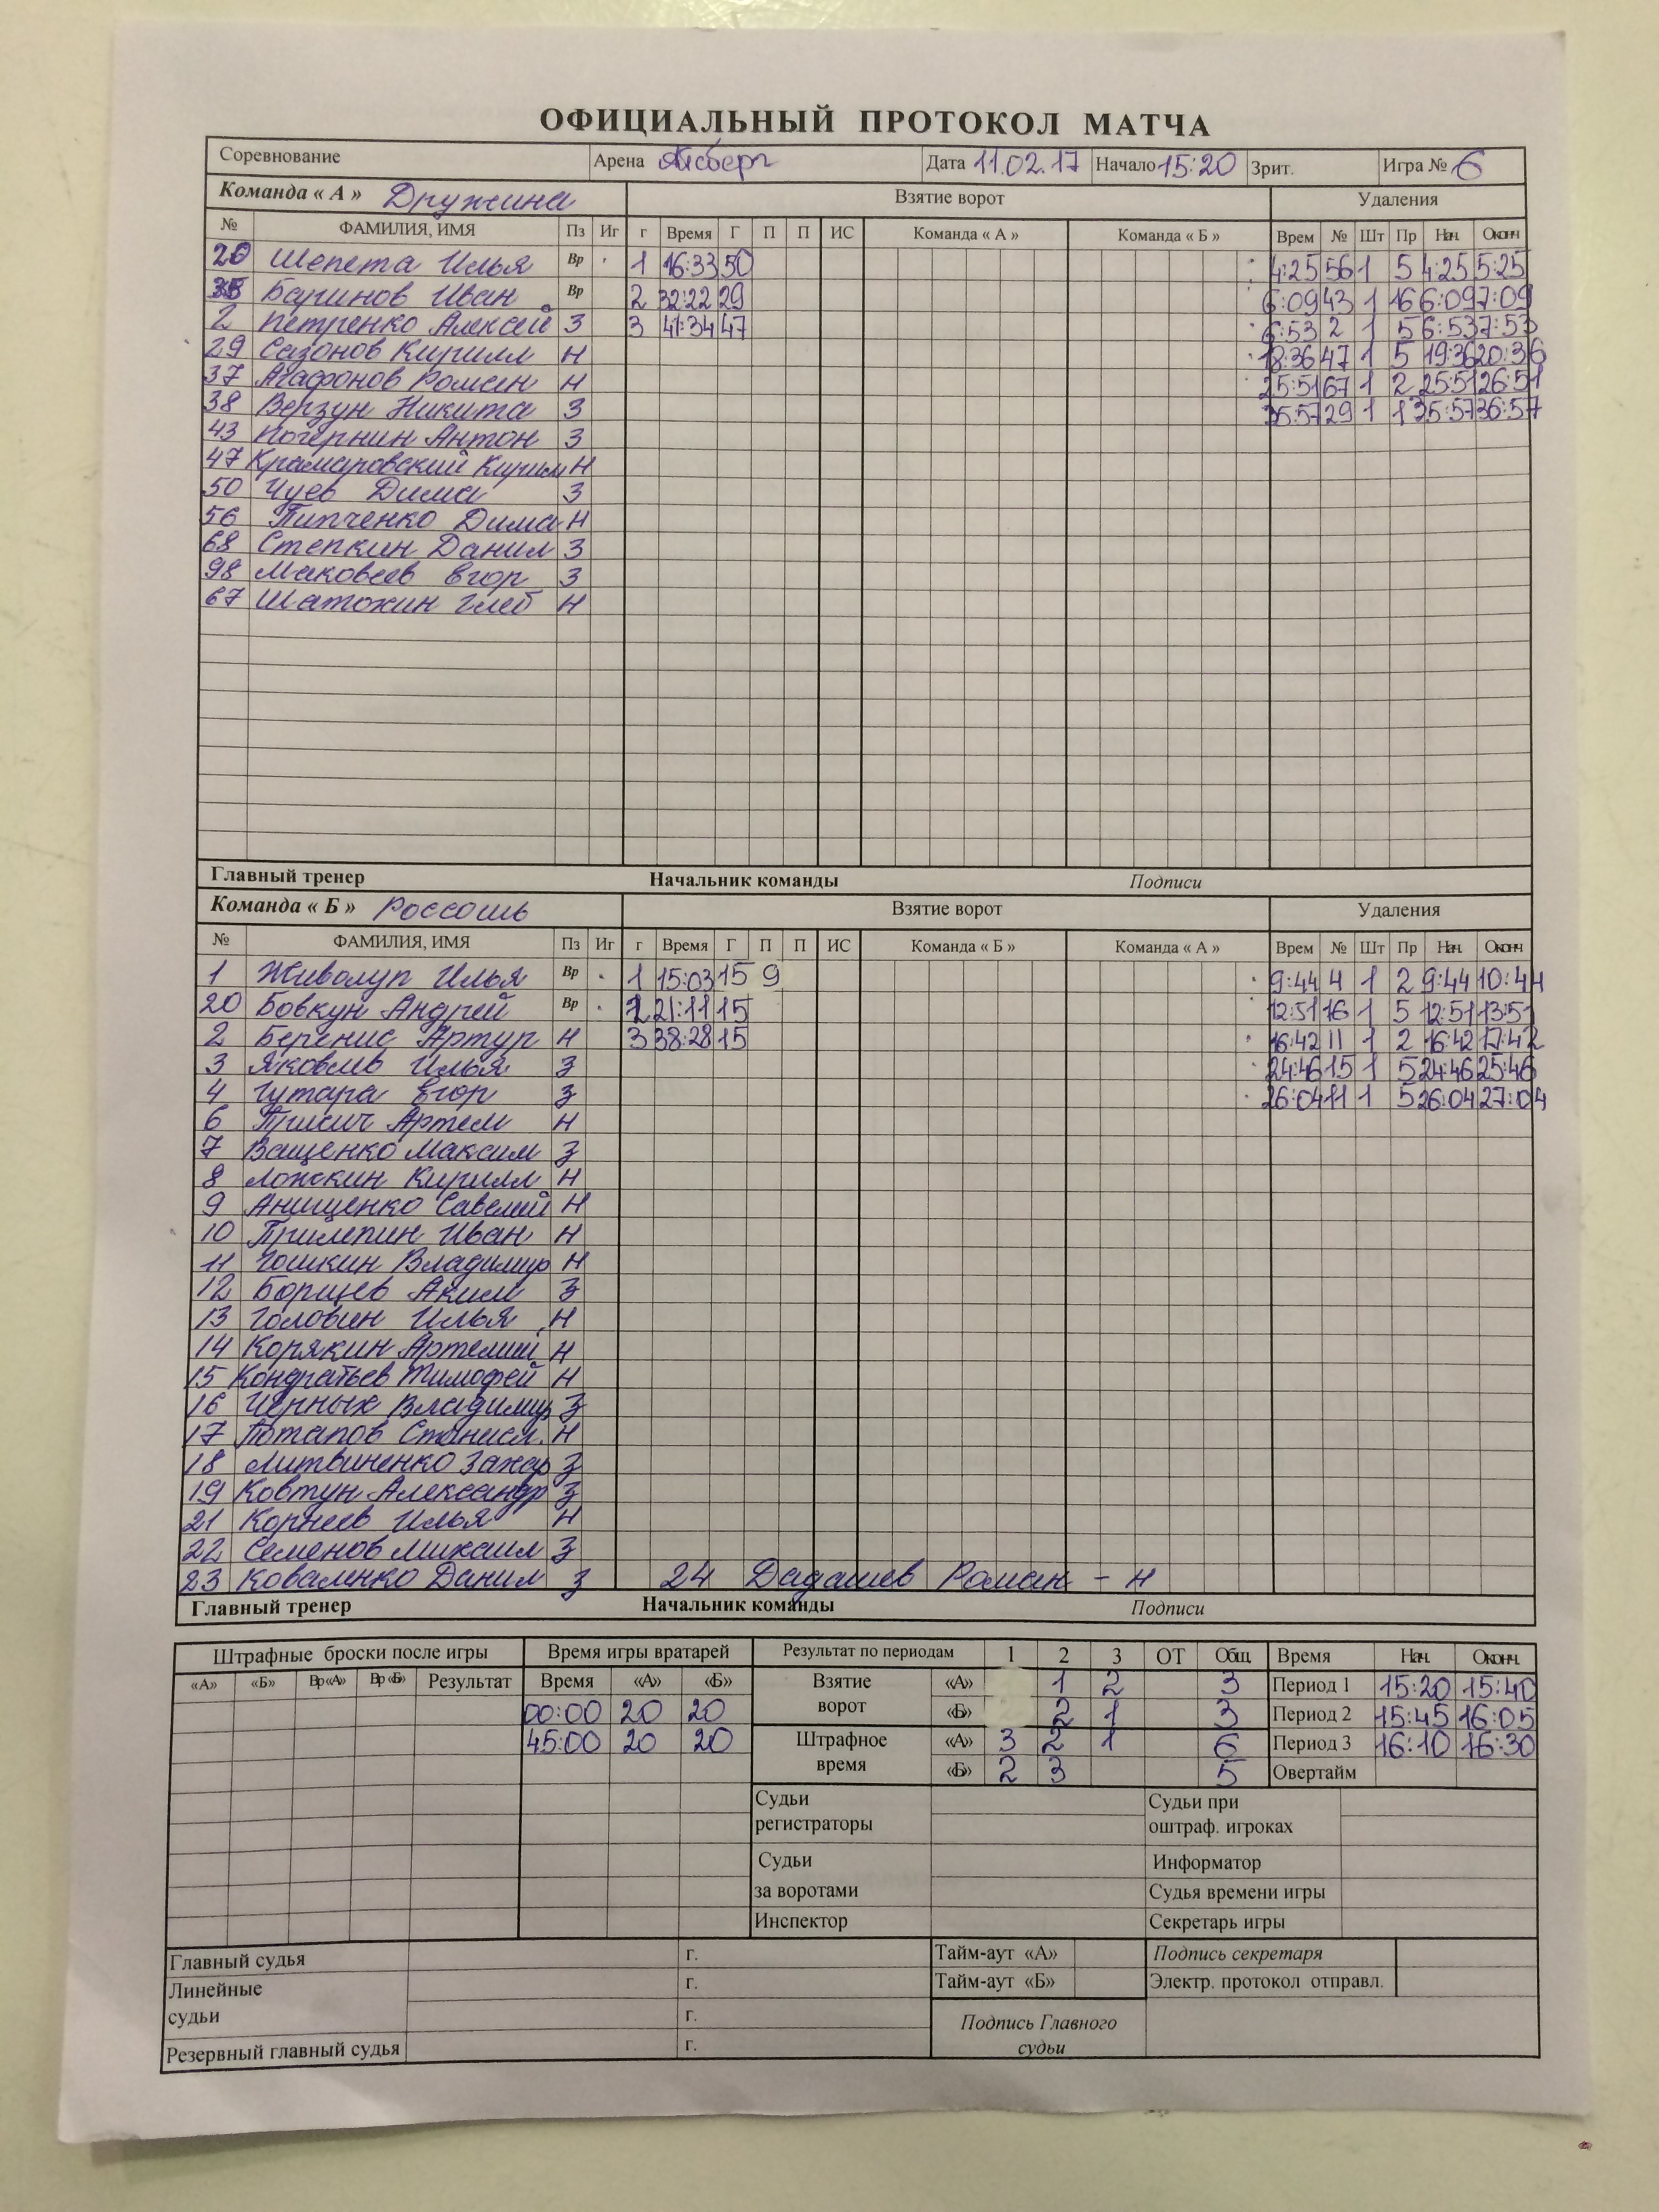 ОФИЦИАЛЬНЫЙ ПРОТОКОЛ МАТЧА
Соревнование Арена Айсберг Дата 11.02.17 Начало 15:20 Зрит. Игра № 6
Команда « А » Дружина Взятие ворот Удаления
№ ФАМИЛИЯ, ИМЯ Пз Иг г Время Г П П ИС Команда « А » Команда « Б » Врем № Шт Пр Нач. Оконч
20 Шепета Илья Вр 1 16:33 50 4:25 56 1 5 4:25 5:25
Багинов Иван Вр 2 32:22 29 6:09 43 1 16 6:09 7:09
2 Петренко Алексей З 3 41:34 47 6:53 2 1 5 6:53 7:53
29 Сазонов Кирилл Н 18:36 47 1 5 19:36 20:36
37 Агафонов Роман Н 25:51 67 1 2 25:51 26:51
38 Верзун Никита З 35:57 29 1 1 35:57 36:57
43 Ногернин Антон З
47 Крамаровский Кирилл Н
50 Чуев Дима З
56 Пипченко Дима Н
68 Степкин Данил З
98 Маковеев Егор З
67 Шатохин Глеб Н
Главный тренер Начальник команды Подписи
Команда « Б » Россошь Взятие ворот Удаления
№ ФАМИЛИЯ, ИМЯ Пз Иг г Время Г П П ИС Команда « Б » Команда « А » Врем № Шт Пр Нач. Оконч
1 Живолуп Илья Вр 1 15:03 15 9 9:44 4 1 2 9:44 10:44
20 Бовкун Андрей Вр 2 21:11 15 12:51 16 1 5 12:51 13:51
2 Беренис Артур Н 3 38:28 15 16:42 11 1 2 16:42 17:42
3 Яковлев Илья З 24:46 15 1 5 24:46 25:46
4 Гутара Егор З 26:04 11 1 5 26:04 27:04
6 Присич Артем Н
7 Ващенко Максим З
8 Ложкин Кирилл Н
9 Анищенко Савелий Н
10 Прилепин Иван Н
11 Гошкин Владимир Н
12 Борщев Аким З
13 Головин Илья Н
14 Корякин Артемий Н
15 Кондратьев Тимофей Н
16 Черных Владимир З
17 Потапов Станисл. Н
18 Литвиненко Захар З
19 Ковтун Александр З
21 Корнеев Илья Н
22 Семенов Михаил З
23 Коваленко Данил З 24 Дадашев Роман - Н
Главный тренер Начальник команды Подписи
Штрафные броски после игры Время игры вратарей Результат по периодам 1 2 3 ОТ Общ. Время Нач. Оконч.
«А» «Б» Вр«А» Вр«Б» Результат Время «А» «Б» Взятие ворот «А» 1 2 3 Период 1 15:20 15:40
00:00 20 20 «Б» 2 1 3 Период 2 15:45 16:05
45:00 20 20 Штрафное время «А» 3 2 1 6 Период 3 16:10 16:30
«Б» 2 3 5 Овертайм
Судьи регистраторы Судьи при оштраф. игроках
Судьи за воротами Информатор
Судья времени игры
Инспектор Секретарь игры
Главный судья г. Тайм-аут «А» Подпись секретаря
Линейные судьи г. Тайм-аут «Б» Электр. протокол отправл.
г. Подпись Главного судьи
Резервный главный судья г.